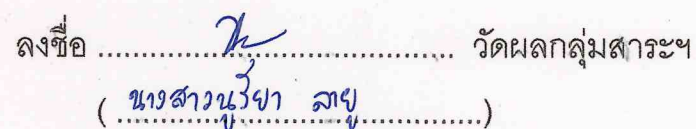 ลงชื่อ .................................................. วัดผลกลุ่มสาระฯ
( นางสาวนูรียา ลายู )